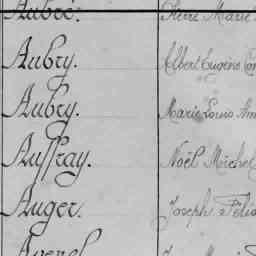 Aubré. Pierre Marie
Aubry. Albert Eugène
Aubry. Marie Louis
Auffray. Noël Michel
Auger. Joseph Félix
Avenel.